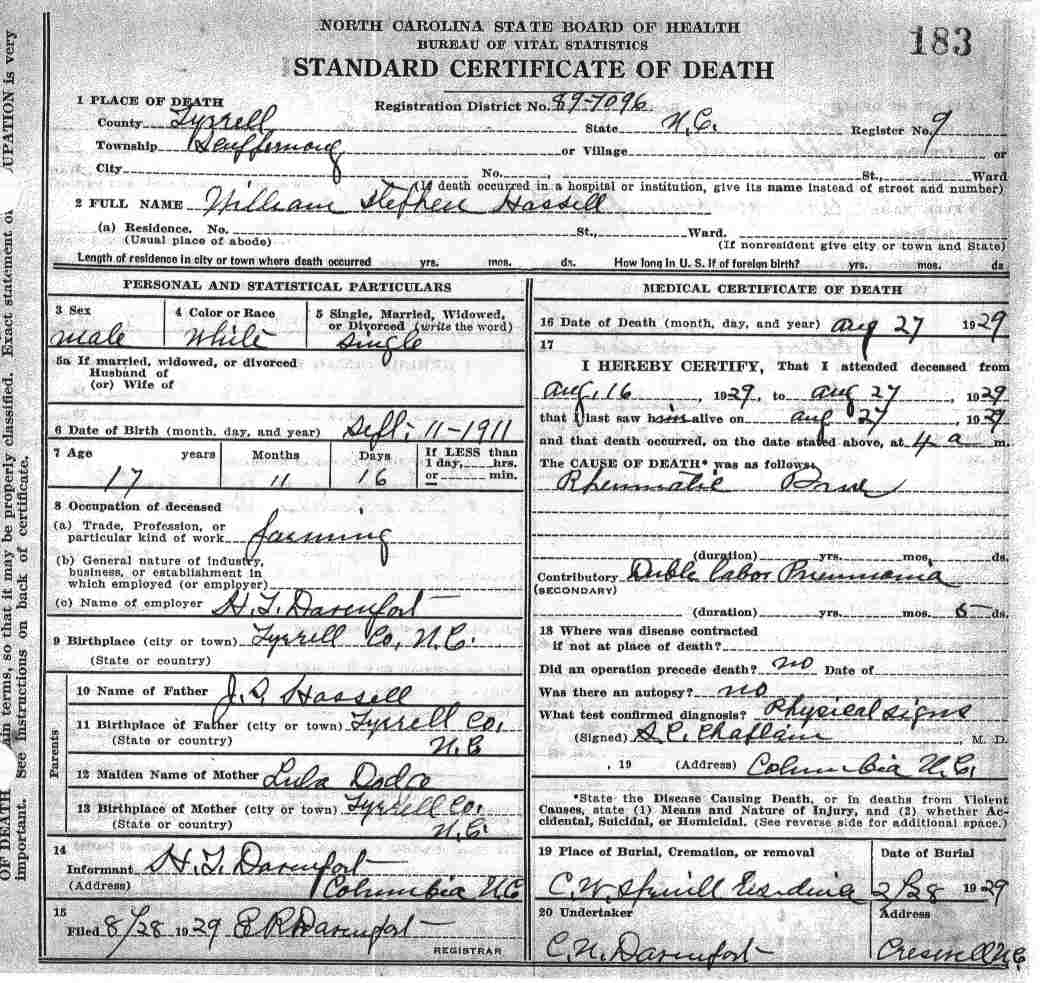 NORTH CAROLINA STATE BOARD OF HEALTH
BUREAU OF VITAL STATISTICS
183
STANDARD CERTIFICATE OF DEATH
1 PLACE OF DEATH
Registration District No. 89-7096
County Tyrrell State N.C. Register No. 9
Township or Village or
City No. St., Ward
(If death occurred in a hospital or institution, give its name instead of street and number)
2 FULL NAME William Stephen Hassell
(a) Residence. No. St., Ward.
(Usual place of abode) (If nonresident give city or town and State)
Length of residence in city or town where death occurred yrs. mos. ds. How long in U. S. if of foreign birth? yrs. mos. ds
PERSONAL AND STATISTICAL PARTICULARS
3 Sex 4 Color or Race 5 Single, Married, Widowed,
or Divorced (write the word)
male White Single
5a If married, widowed, or divorced
Husband of
(or) Wife of
6 Date of Birth (month, day, and year) Sept. 11-1911
7 Age years Months Days If LESS than
1 day, hrs.
or min.
17 11 16
8 Occupation of deceased
(a) Trade, Profession, or
particular kind of work farming
(b) General nature of industry,
business, or establishment in
which employed (or employer)
(c) Name of employer H.T. Davenport
9 Birthplace (city or town) Tyrrell Co, N.C.
(State or country)
Parents
10 Name of Father J.S. Hassell
11 Birthplace of Father (city or town) Tyrrell Co,
(State or country) N.C
12 Maiden Name of Mother Lula
13 Birthplace of Mother (city or town) Tyrrell Co,
(State or country) N.C
14
Informant H.T. Davenport
(Address) Columbia N.C
15
Filed 8/28 1929 E R Davenport
REGISTRAR
MEDICAL CERTIFICATE OF DEATH
16 Date of Death (month, day, and year) Aug 27 1929
17
I HEREBY CERTIFY, That I attended deceased from
Aug, 16, 1929, to Aug 27, 1929
that I last saw him alive on Aug 27, 1929
and that death occurred, on the date stated above, at 4 a m.
The CAUSE OF DEATH* was as follows:
Rheumatic
(duration) yrs. mos. ds.
Contributory Duble labor Pneumonia
(SECONDARY)
(duration) yrs. mos. 5 ds.
18 Where was disease contracted
if not at place of death?
Did an operation precede death? no Date of
Was there an autopsy? no
What test confirmed diagnosis? Physical signs
(Signed) S.C. Chaplain, M. D.
, 19 (Address) Columbia N.C.
*State the Disease Causing Death, or in deaths from Violent
Causes, state (1) Means and Nature of Injury, and (2) whether Ac-
cidental, Suicidal, or Homicidal. (See reverse side for additional space.)
19 Place of Burial, Cremation, or removal Date of Burial
C.W. Spruill 2/28 1929
20 Undertaker Address
C.N. Davenport Creswell N.C.
UPATION is very
Exact statement of
ain terms, so that it may be properly classified.
See instructions on back of certificate.
OF DEATH
important.